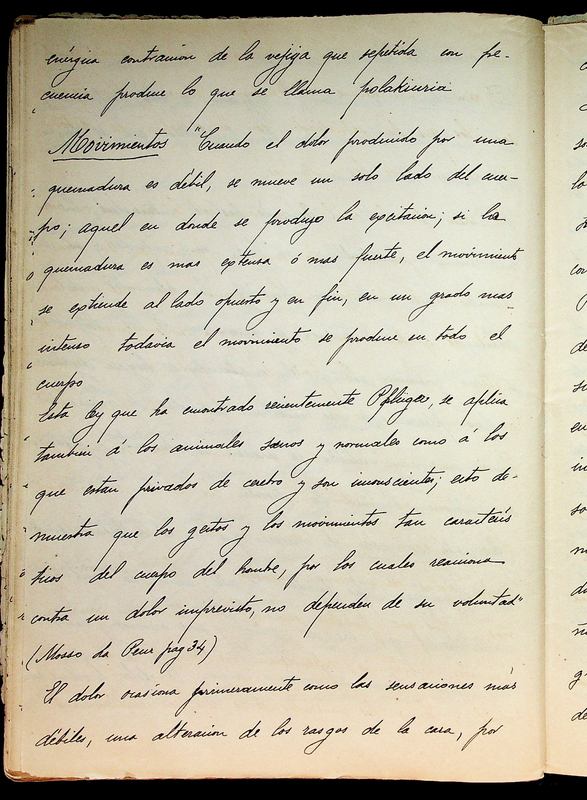 enérgica contracción de la vejiga que repetida con fre-
cuencia produce lo que se llama polakiuria
Movimientos "Cuando el dolor producido por una
quemadura es débil, se mueve un solo lado del cuer-
po; aquel en donde se produjo la excitacion; si la
quemadura es mas extensa ó mas fuerte, el movimiento
se extiende al lado opuesto y en fin, en un grado mas
intenso todavia el movimiento se produce en todo el
cuerpo
Esta ley que ha encontrado recientemente Pflüger, se aplica
tambien á los animales sanos y normales como á los
que estan privados de cerebro y son inconscientes; esto de-
muestra que los gestos y los movimientos tan caracterís
ticos del cuerpo del hombre, por los cuales reacciona
contra un dolor imprevisto, no dependen de su voluntad"
(Mosso La Peur pag 34)
El dolor ocasiona primeramente como las sensaciones más
débiles, una alteracion de los rasgos de la cara, por